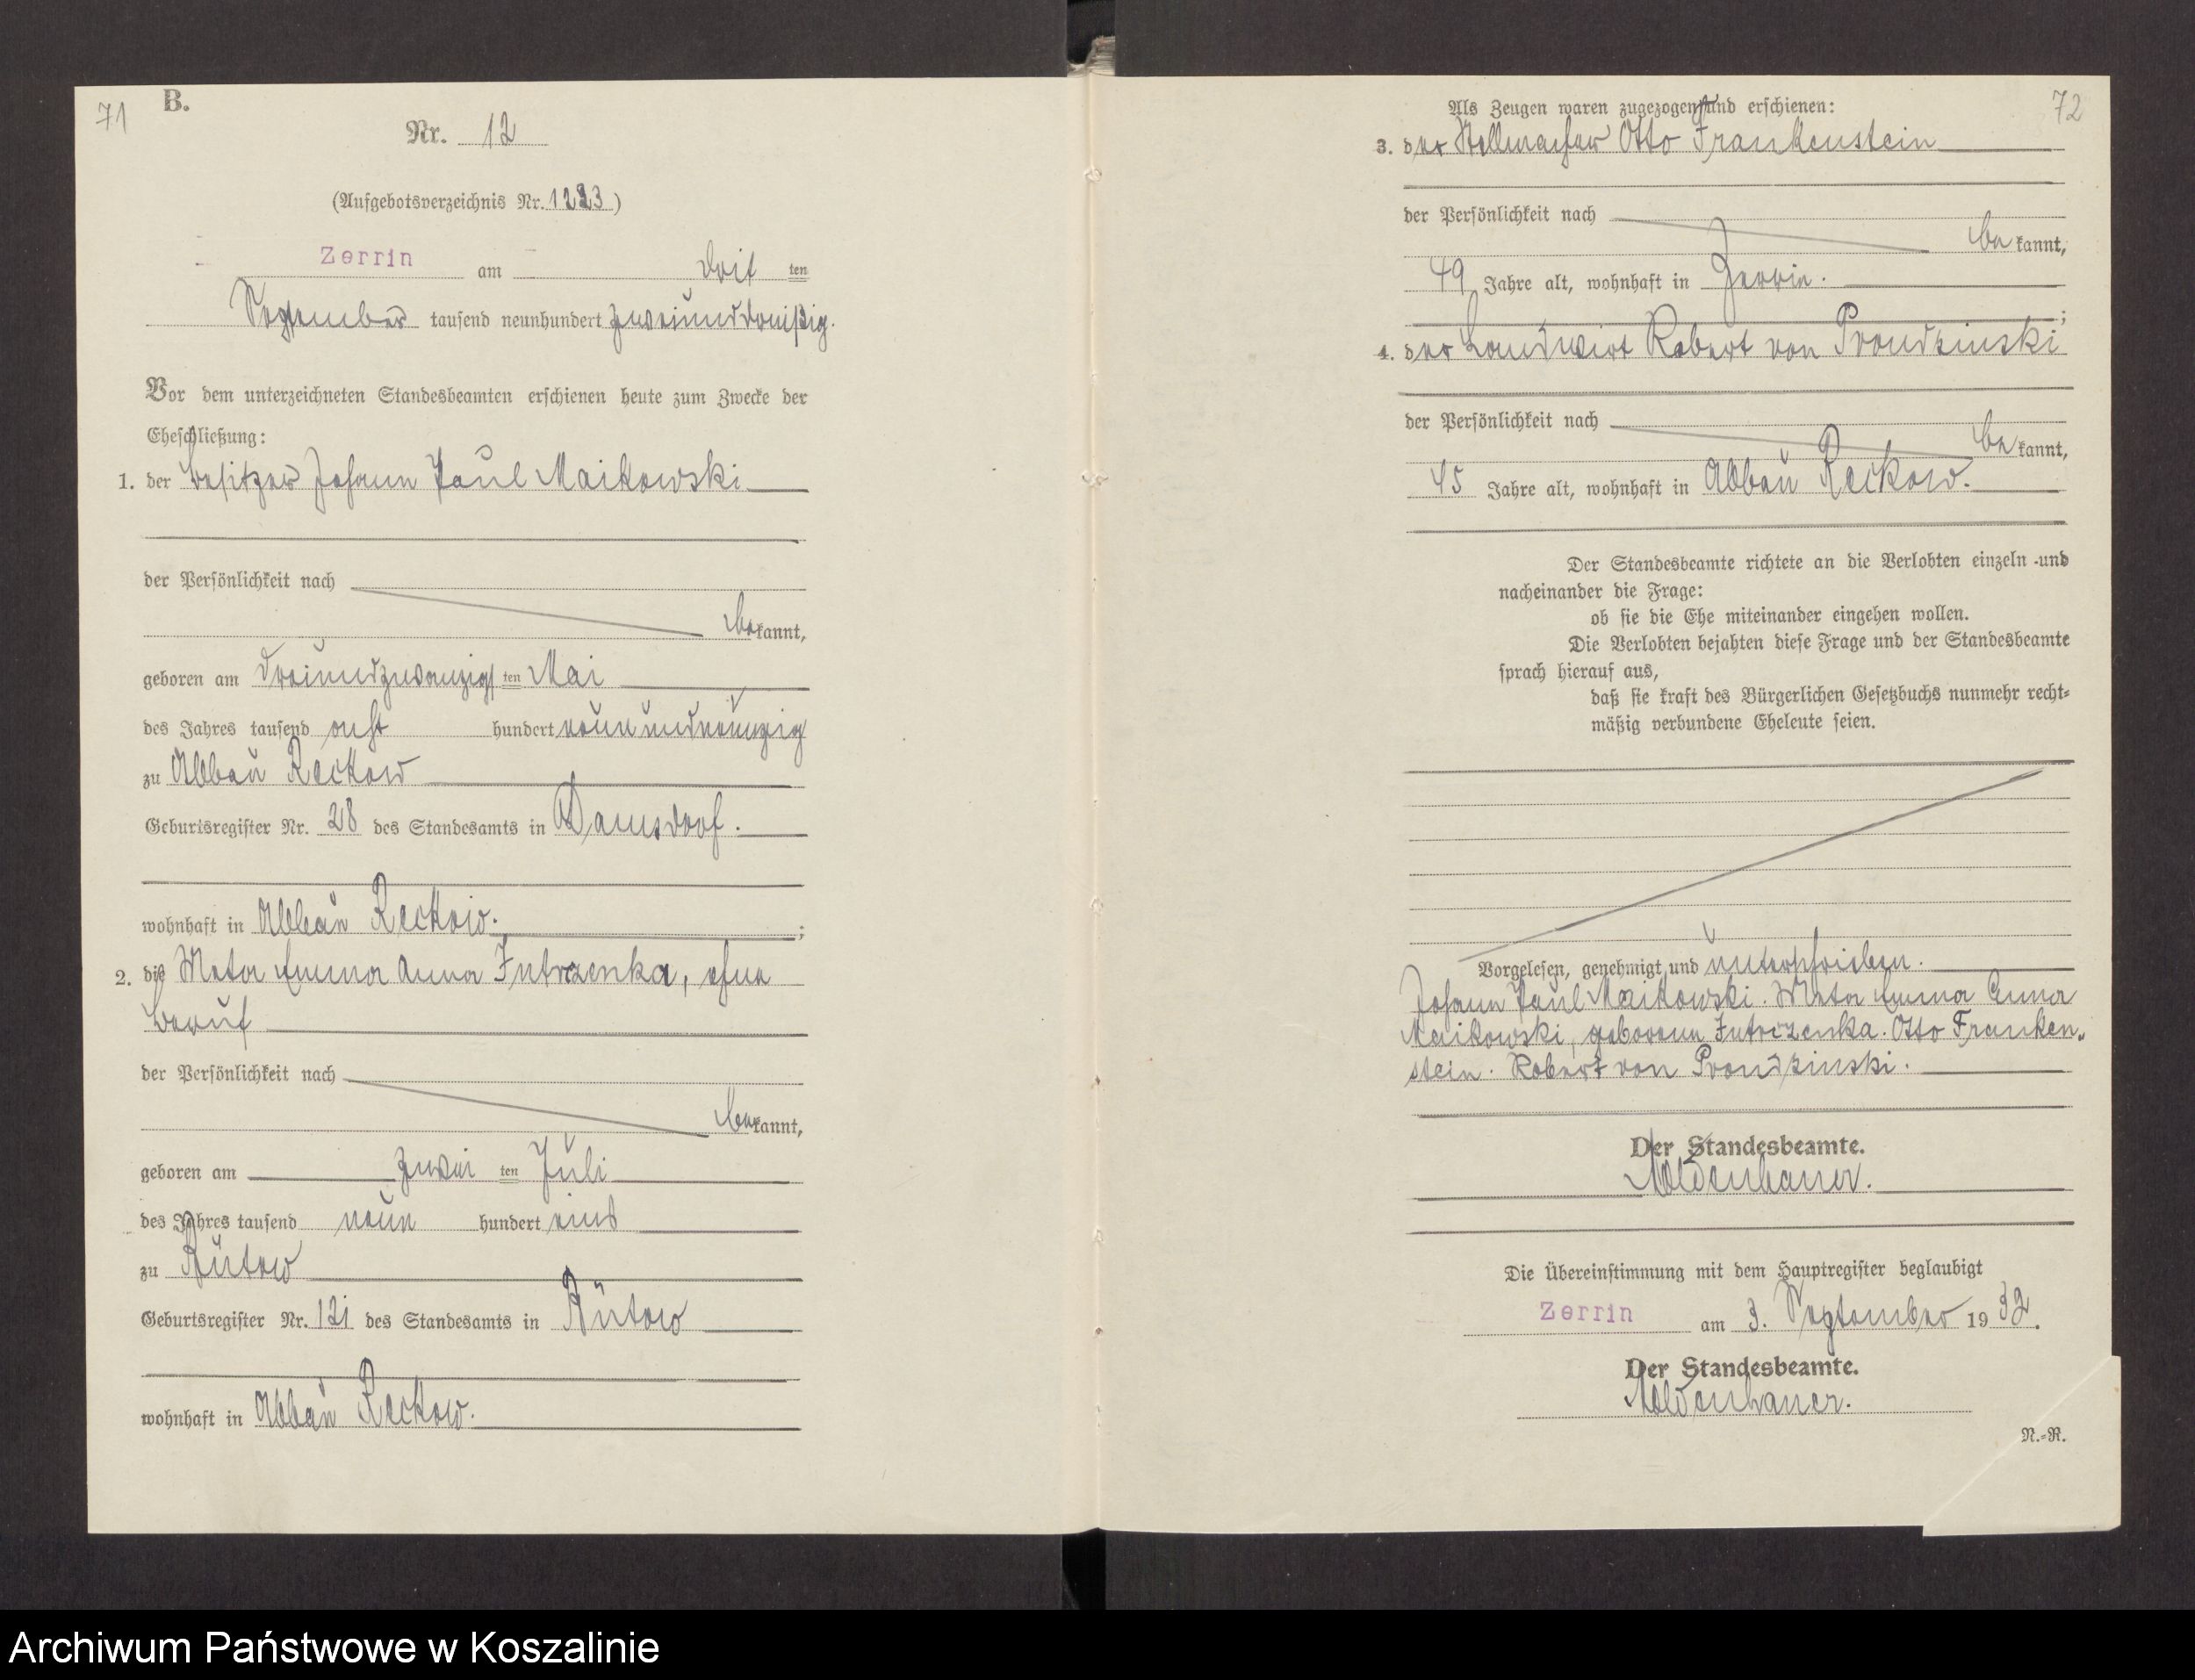 71
B.
Nr. 12
(Aufgebotsverzeichnis Nr. )
Zerrin am drit ten
September tausend neunhundert zweiunddreißig.
Vor dem unterzeichneten Standesbeamten erschienen heute zum Zwecke der
Eheschließung:
1. der Besitzer Johann Paul Maikowski
der Persönlichkeit nach
bekannt,
geboren am dreiundzwanzigs ten Mai
des Jahres tausend acht hundert neunundneunzig
zu Abbau Reckow
Geburtsregister Nr. 28 des Standesamts in Damsdorf.
wohnhaft in Abbau Reckow. ;
2. die Meta Emma Anna Jutrzenka, ohne
Beruf
der Persönlichkeit nach
bekannt,
geboren am zwei ten Juli
des Jahres tausend neun hundert eins
zu Bütow
Geburtsregister Nr. 121 des Standesamts in Bütow
wohnhaft in Abbau Reckow.
72
Als Zeugen waren zugezogen und erschienen:
3. der Stellmacher Otto Frankenstein
der Persönlichkeit nach
be kannt,
49 Jahre alt, wohnhaft in Zerrin.
;
4. der Landwirt Robert von Prondzinski
der Persönlichkeit nach
be kannt,
45 Jahre alt, wohnhaft in Abbau Reckow.
Der Standesbeamte richtete an die Verlobten einzeln und
nacheinander die Frage:
ob sie die Ehe miteinander eingehen wollen.
Die Verlobten bejahten diese Frage und der Standesbeamte
sprach hierauf aus,
daß sie kraft des Bürgerlichen Gesetzbuchs nunmehr recht-
mäßig verbundene Eheleute seien.
Vorgelesen, genehmigt und unterschrieben.
Johann Paul Maikowski. Meta Emma Anna
Maikowski, geborene Jutrzenka. Otto Franken„
stein. Robert von Prondzinski.
Der Standesbeamte.
Moldenhauer.
Die Übereinstimmung mit dem Hauptregister beglaubigt
Zerrin am 3. September 1932.
Der Standesbeamte.
Moldenhauer.
N.-R.
Archiwum Państwowe w Koszalinie